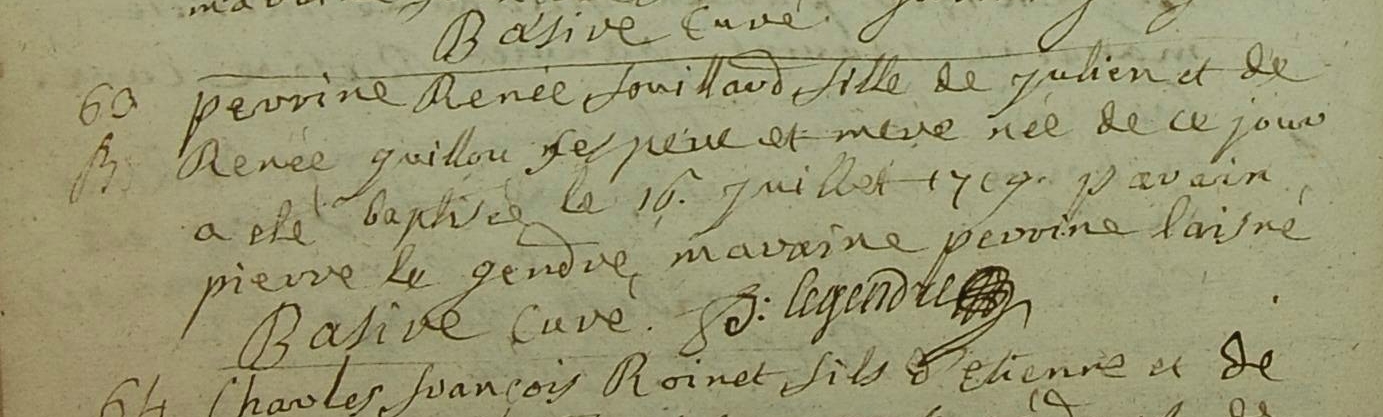 Basire Curé
63 perrine Renée souillard fille de julien et de
B. Renée guillou ses pere et mere née de ce jour
a eté baptisée le 16. juillet 1709. parain
pierre le gendre, maraine perrine laisné
Basire Curé. P: legendre
64 Charles françois Roinet fils d'etienne et de